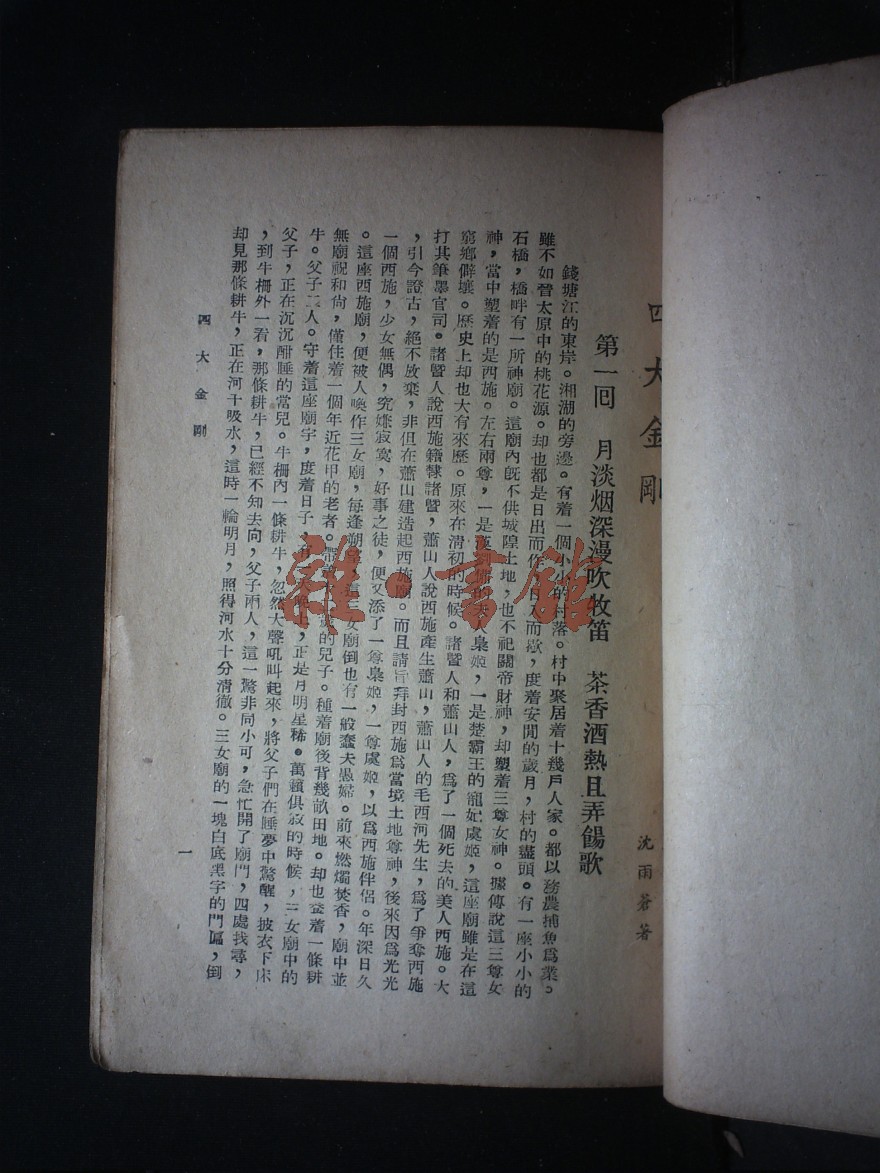 四大金剛
沈雨蒼著
第一囘　月淡烟深漫吹牧笛　茶香酒熱且弄餳歌
錢塘江的東岸。湘湖的旁邊。有着一個小小的村落。村中聚居着十幾戶人家。都以務農捕魚爲業。
雖不如晉太原中的桃花源。却也都是日出而作，日入而歇，度着安閒的歲月，村的盡頭。有一座小小的
石橋，橋畔有一所神廟。這廟內旣不供城隍土地，也不祀關帝財神，却塑着三尊女神。據傳說這三尊女
神，當中塑着的是西施。左右兩尊，一是漢劉備的夫人梟姬，一是楚霸王的寵妃虞姬，這座廟雖是在這
窮鄉僻壤。歷史上却也大有來歷。原來在淸初的時候。諸暨人和蕭山人，爲了一個死去的美人西施。大
打其筆墨官司。諸暨人說西施籍隸諸暨，蕭山人說西施產生蕭山，蕭山人的毛西河先生，爲了爭奪西施
，引今證古，絕不放棄，非但在蕭山建造起西施廟。而且請旨拜封西施爲當境土地尊神，後來因爲光光
一個西施，少女無偶，究嫌寂寞，好事之徒，便又添了一尊梟姬，一尊虞姬，以爲西施伴侶。年深日久
。這座西施廟，便被人喚作三女廟，每逢朔望，這三女廟倒也有一般蠢夫愚婦。前來燃燭焚香，廟中並
無廟祝和尙，僅住着一個年近花甲的老者。帶着 歲的兒子。種着廟後背幾畝田地。却也養着一條耕
牛。父子二人。守着這座廟宇，度着日子，有一天晚上，正是月明星稀。萬籟俱寂的時候，三女廟中的
父子，正在沉沉酣睡的當兒。牛柵內一條耕牛，忽然大聲吼叫起來，將父子們在睡夢中驚醒，披衣下床
，到牛柵外一看，那條耕牛，已經不知去向，父子兩人，這一驚非同小可，急忙開了廟門，四處找尋，
却見那條耕牛，正在河干吸水，這時一輪明月，照得河水十分清徹。三女廟的一塊白底黑字的門匾，倒
四大金剛
一
雜·書館